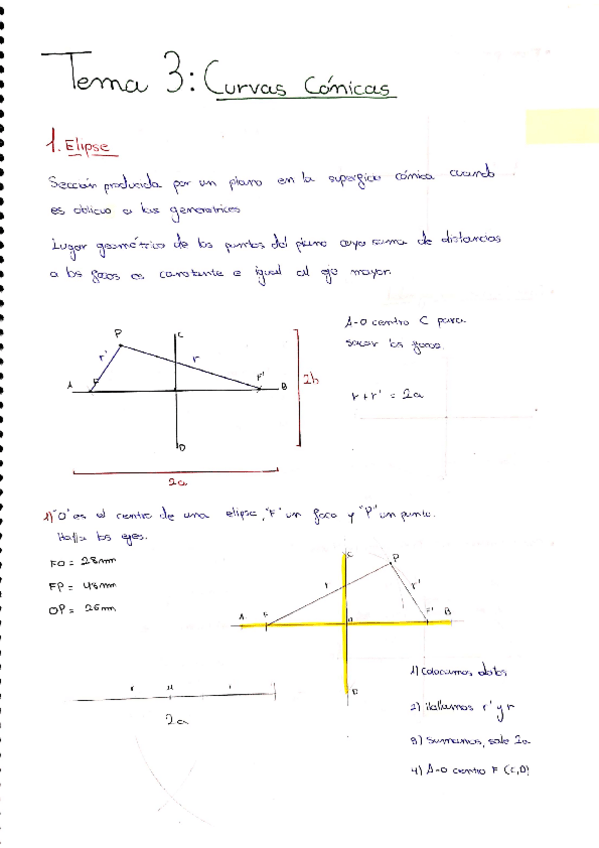 Tema 3: Curvas Cónicas
1. Elipse
Sección producida por un plano en la superficie cónica cuando
es oblicuo a las generatrices
Lugar geométrico de los puntos del plano cuya suma de distancias
a los focos es constante e igual al eje mayor.
A-O centro C para
sacar los focos.
P
C
r'
r
A
F
F'
B
2b
r+r' = 2a
D
2a
1) "O" es el centro de una elipse, "F" un foco y "P" un punto.
Halla los ejes.
FO = 28mm
FP = 48mm
OP = 26mm
C
P
r
r'
A
F
O
F'
B
D
2a
1) Colocamos datos
2) Hallamos r' y r
3) Sumamos, sale 2a
4) A-O centro F (C,D)